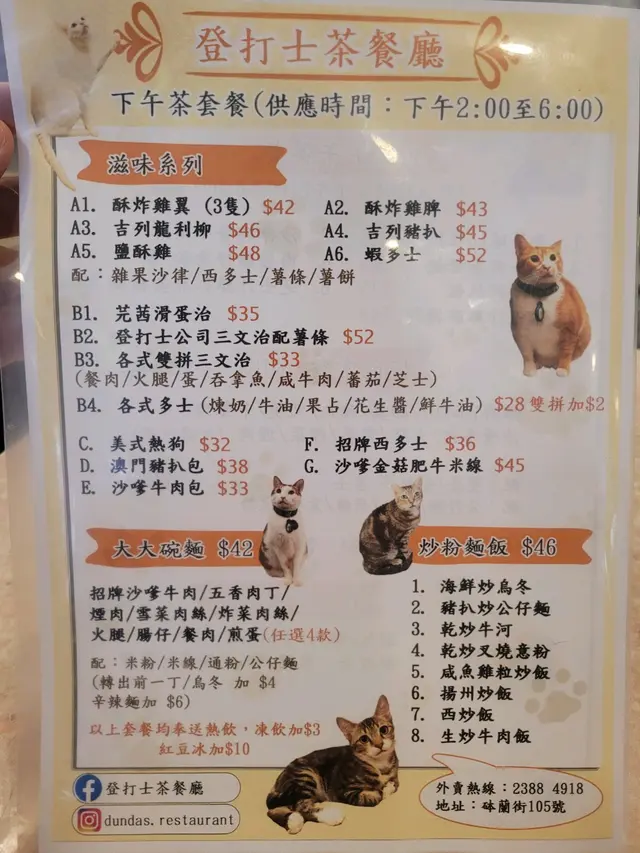 登打士茶餐廳
下午茶套餐(供應時間：下午2:00至6:00)
滋味系列
A1. 酥炸雞翼 (3隻) $42 A2. 酥炸雞脾 $43
A3. 吉列龍利柳 $46 A4. 吉列豬扒 $45
A5. 鹽酥雞 $48 A6. 蝦多士 $52
配：雜果沙律/西多士/薯條/薯餅
B1. 芫茜滑蛋治 $35
B2. 登打士公司三文治配薯條 $52
B3. 各式雙拼三文治 $33
(餐肉/火腿/蛋/吞拿魚/咸牛肉/蕃茄/芝士)
B4. 各式多士(煉奶/牛油/果占/花生醬/鮮牛油) $28 雙拼加$2
C. 美式熱狗 $32 F. 招牌西多士 $36
D. 澳門豬扒包 $38 G. 沙嗲金菇肥牛米線 $45
E. 沙嗲牛肉包 $33
大大碗麵 $42
招牌沙嗲牛肉/五香肉丁/
煙肉/雪菜肉絲/炸菜肉絲/
火腿/腸仔/餐肉/煎蛋(任選4款)
配：米粉/米線/通粉/公仔麵
(轉出前一丁/烏冬 加 $4
辛辣麵加 $6)
以上套餐均奉送熱飲，凍飲加$3
紅豆冰加$10
炒粉麵飯 $46
1. 海鮮炒烏冬
2. 豬扒炒公仔麵
3. 乾炒牛河
4. 乾炒叉燒意粉
5. 咸魚雞粒炒飯
6. 揚州炒飯
7. 西炒飯
8. 生炒牛肉飯
登打士茶餐廳
dundas.restaurant
外賣熱線：2388 4918
地址：砵蘭街105號